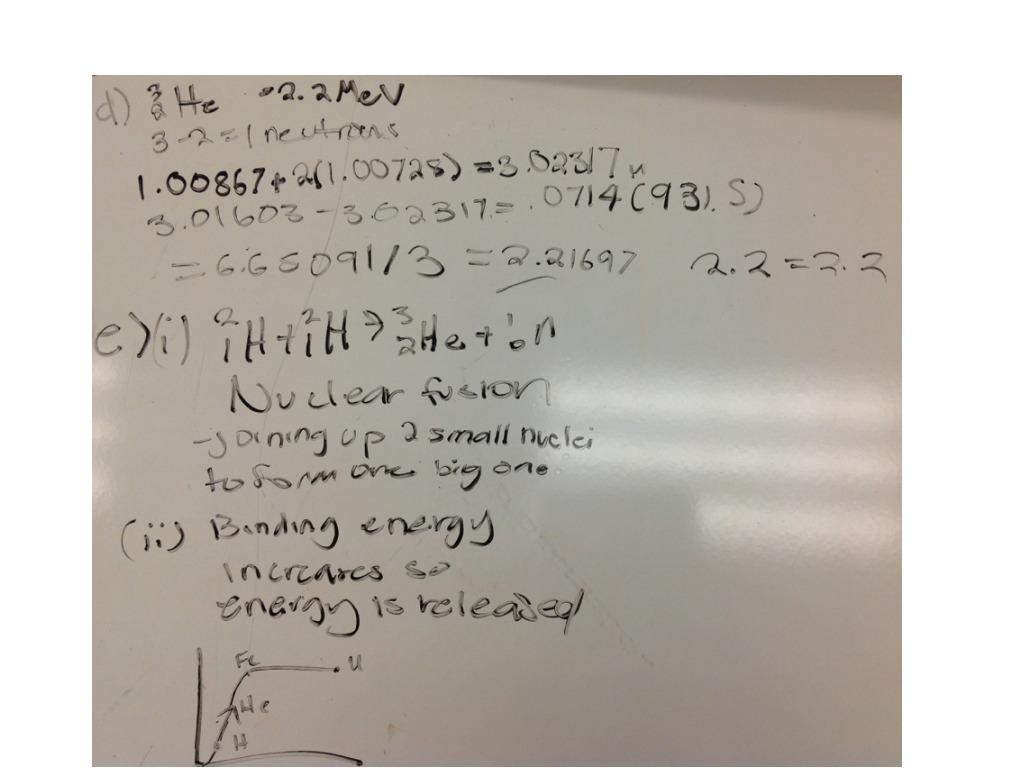 d) ³₂He -2.2MeV
3-2=1 neutrons
1.00867+2(1.00728)=3.02317u
3.01603-3.02317=.0714(931.5)
=6.65091/3 =2.21697 2.2=2.2
e)(i) ²₁H+²₁H→³₂He+¹₀n
Nuclear fusion
-joining up 2 small nuclei
to form one big one
(ii) Binding energy
increases so
energy is released
Fe U
He
H